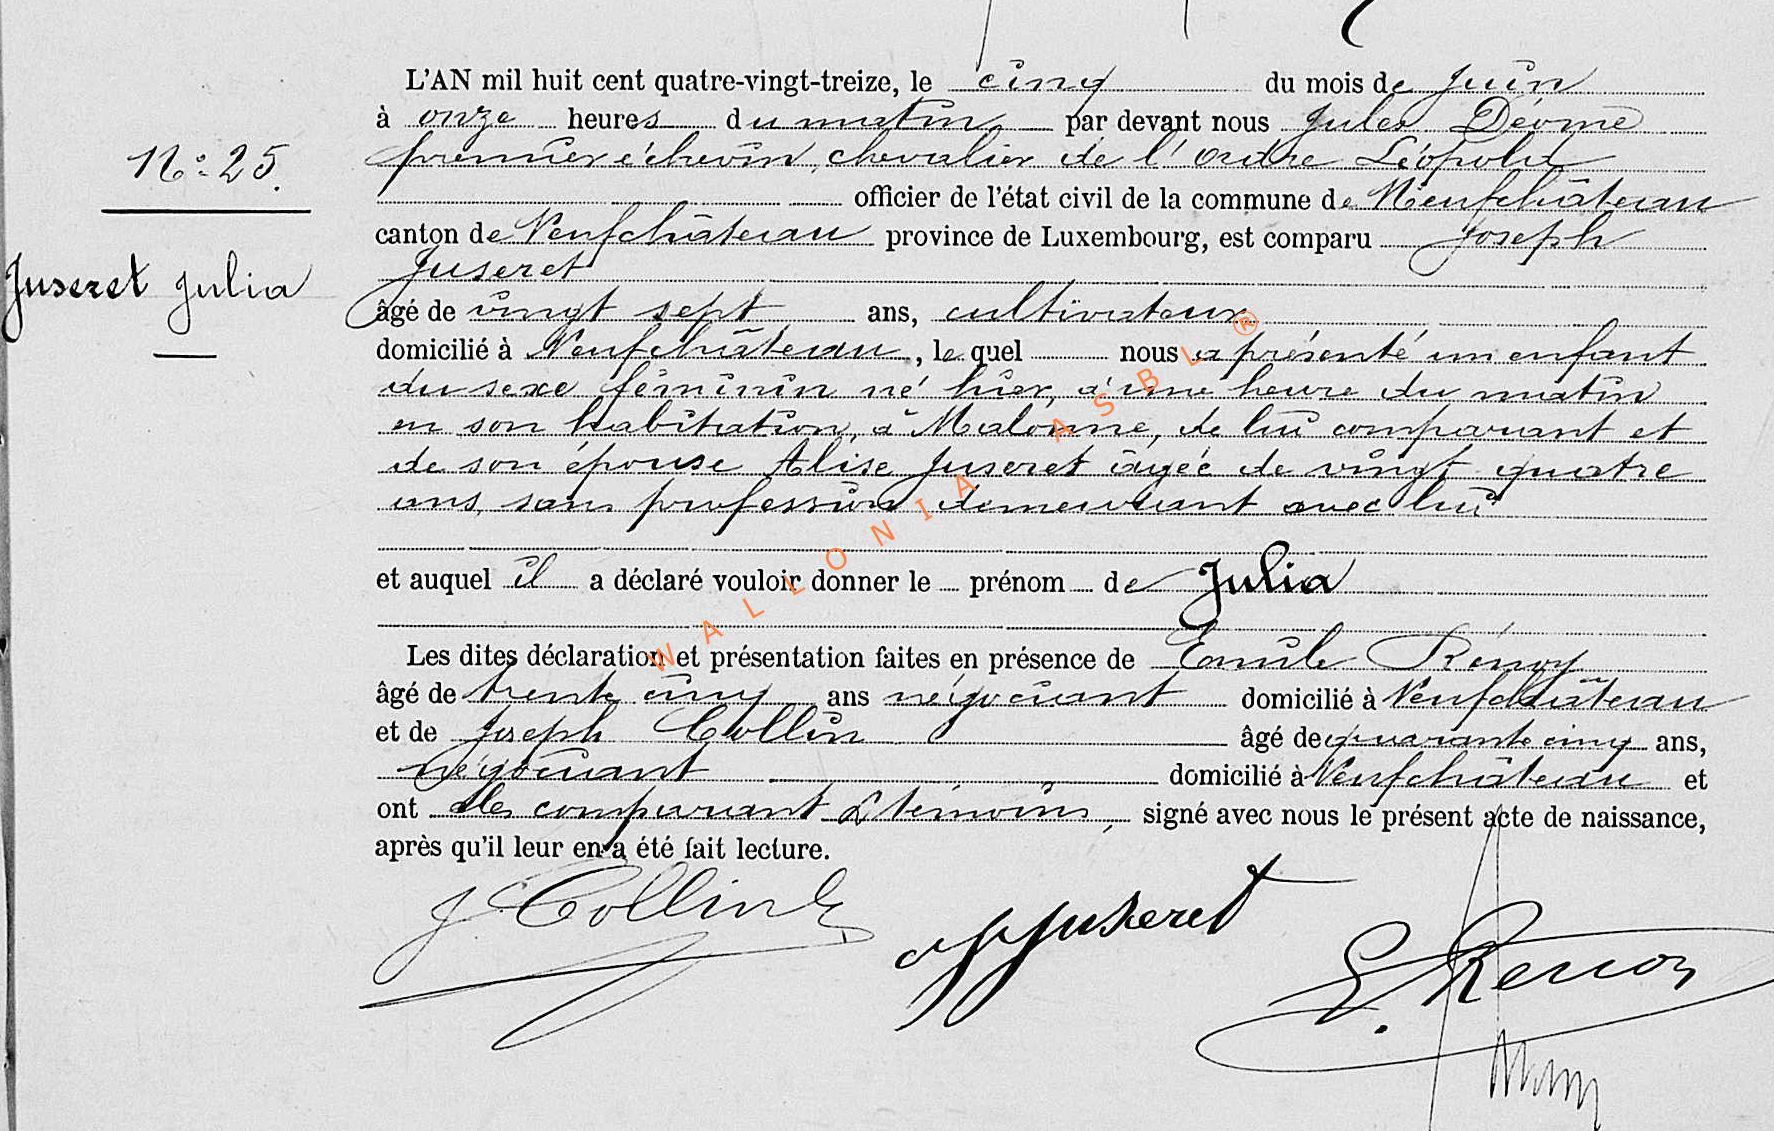 L'AN mil huit cent quatre-vingt-treize, le cinq du mois de Juin
à onze heures du matin par devant nous Jules Déome
premier échevin, chevalier de l'Ordre Léopold
N° 25.
officier de l'état civil de la commune de Neufchâteau
canton de Neufchâteau province de Luxembourg, est comparu Joseph
Juseret
Juseret Julia
âgé de vingt sept ans, cultivateur
domicilié à Neufchâteau, le quel nous a présenté un enfant
du sexe féminin né hier, à une heure du matin
en son habitation, à Malonne, de lui comparant et
de son épouse Alise Juseret âgée de vingt quatre
ans, sans profession demeurant avec lui
et auquel il a déclaré vouloir donner le prénom de Julia
Les dites déclaration et présentation faites en présence de Emile Rénoy
âgé de trente cinq ans négociant domicilié à Neufchâteau
et de Joseph Collin âgé de quarante cinq ans,
négociant domicilié à Neufchâteau et
ont les comparant & témoins, signé avec nous le présent acte de naissance,
après qu'il leur en a été fait lecture.
J. Collin Juseret E. Renoy
WALLONIA ASBL ®